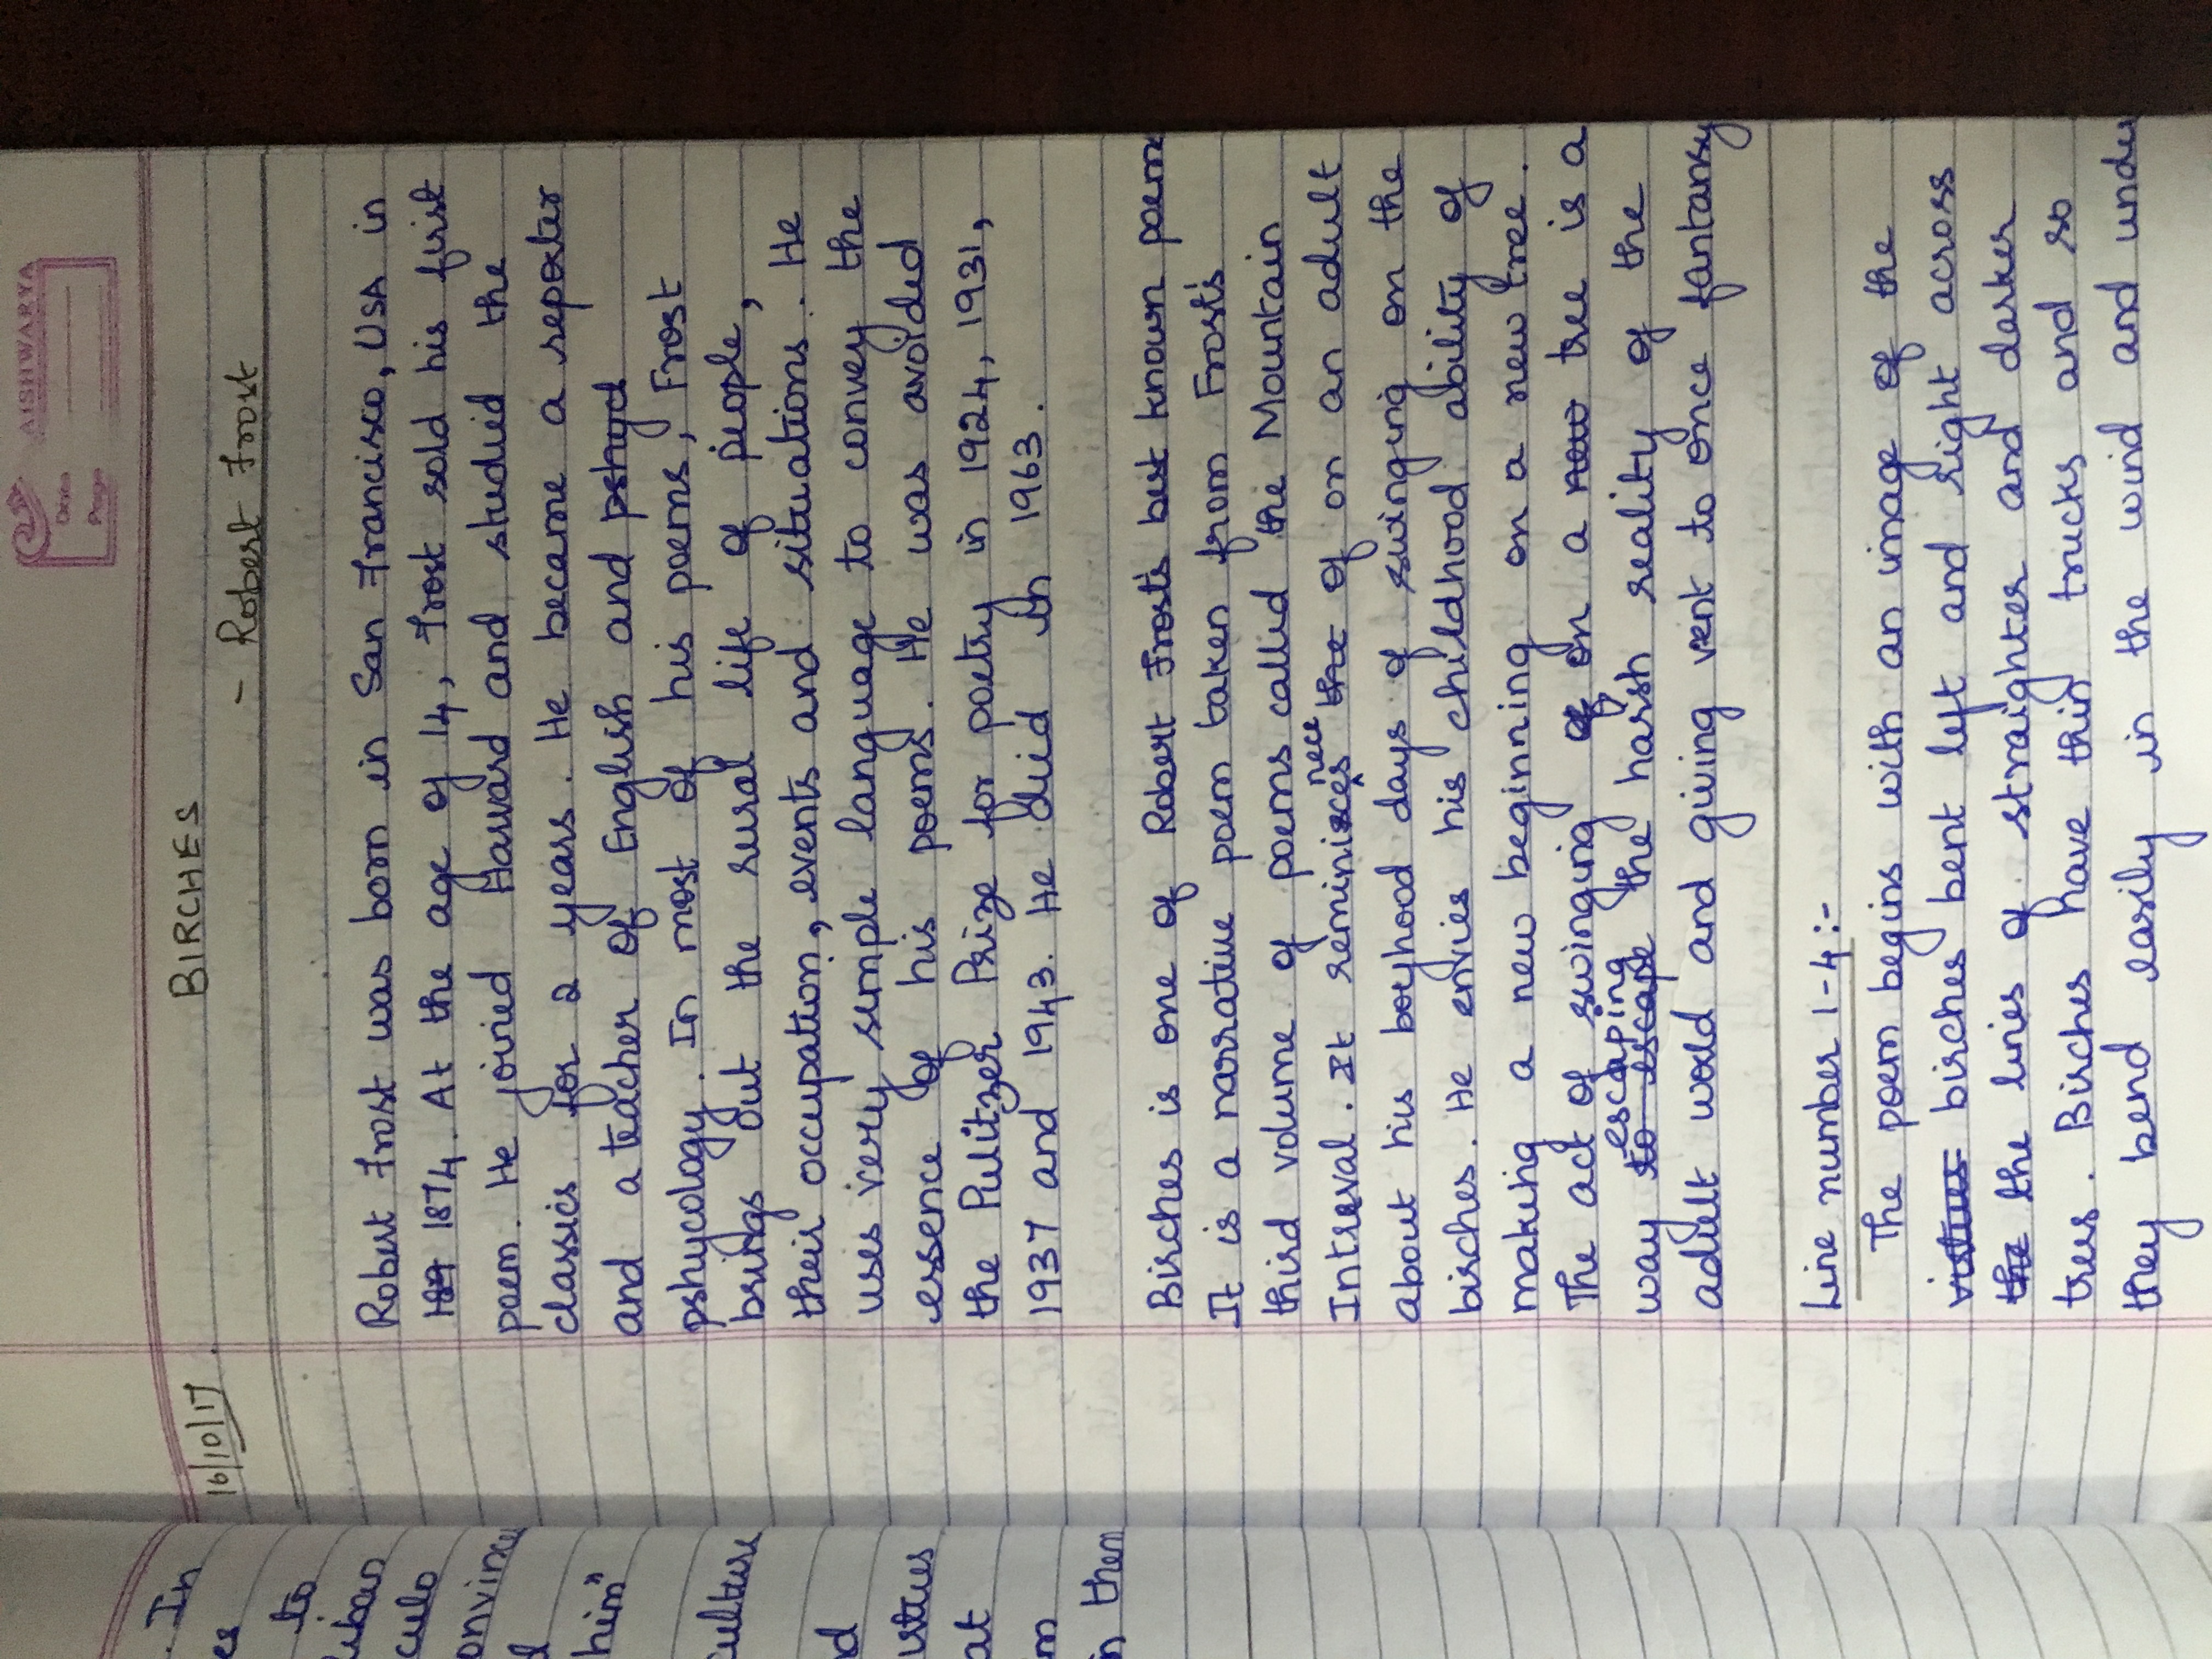 . In
es
to
liban
culo
onvince
d
him"
culture
nd
ustus
at
m
n them
AISHWARYA
Date
Page
16/10/17
BIRCHES
- Robert Frost
Robert Frost was born in San Francisco, USA in
189 1874. At the age of 14, Frost sold his first
poem. He joined Harvard and studied the
classics for 2 years. He became a reporter
and a teacher of English and pshycl
pshycology. In most of his poems, Frost
brings out the rural life of people,
their occupation, events and situations. He
uses very simple language to convey the
essence of his poems. He was avorded
the Pulitzer Prize for poetry in 1924, 1931,
1937 and 1943. He died in 1963.
Birches is one of Robert Frost's best known poem
It is a narrative poem taken from Frost's
third volume of poems called the Mountain
nece
Intreval. It reminisces the of on an adult
about his boyhood days of swinging on the
birches. He envies his childhood ability of
making a new beginning on a new tree.
The act of swinging of on a new tree is a
escaping
way to escape the harsh reality of the
adult world and giving vent to once fantansy
Line number 1-4:-
The poem begins with an image of the
birches bent left and right across
the the lines of straighter and darker
trees. Birches have thin trucks and so
they bend easily in the wind and unde